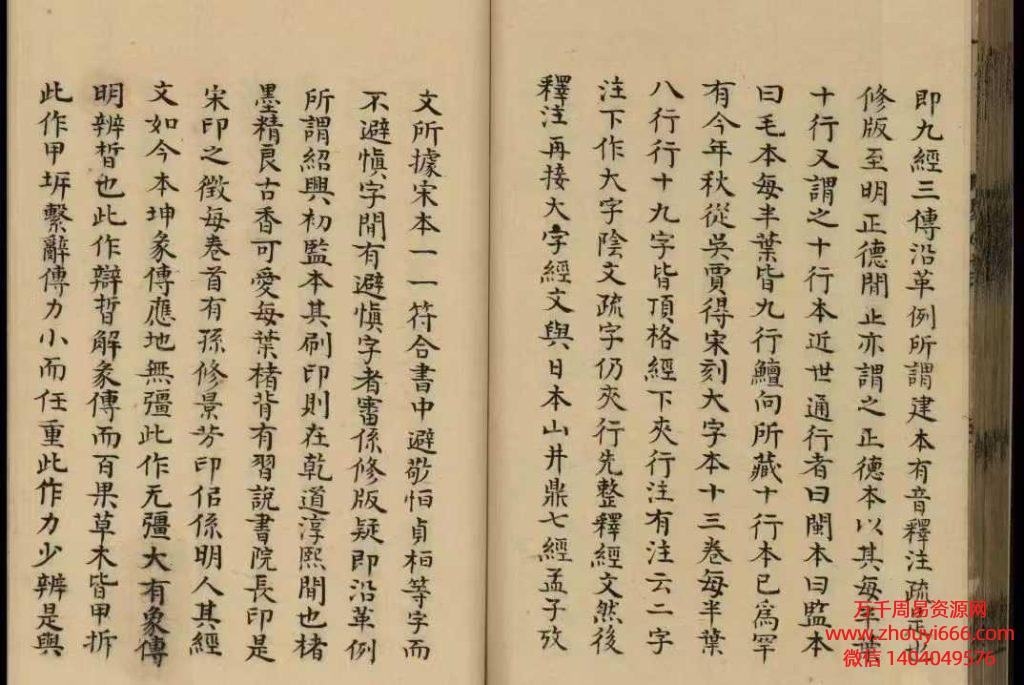 即九經三傳沿革例所謂建本有音釋注疏是也
修版至明正德間止亦謂之正德本以其每半葉
十行又謂之十行本近世通行者曰閩本曰監本
曰毛本每半葉皆九行鱣向所藏十行本已爲罕
有今年秋從吳賈得宋刻大字本十三卷每半葉
八行行十九字皆頂格經下夾行注有注云二字
注下作大字陰文疏字仍夾行先整釋經文然後
釋注再接大字經文與日本山井鼎七經孟子攷
文所據宋本一一符合書中避敬恒貞桓等字而
不避慎字間有避慎字者審係修版疑即沿革例
所謂紹興初監本其刷印則在乾道淳熙間也楮
墨精良古香可愛每葉楮背有習說書院長印是
宋印之徵每卷首有孫修景芳印侶係明人其經
文如今本坤彖傳應地無彊此作无彊大有象傳
明辨晢也此作辯晢解彖傳而百果草木皆甲拆
此作甲坼繫辭傳力小而任重此作力少辨是與
万千周易资源网
www.zhouyi666.com
微信 1404049576